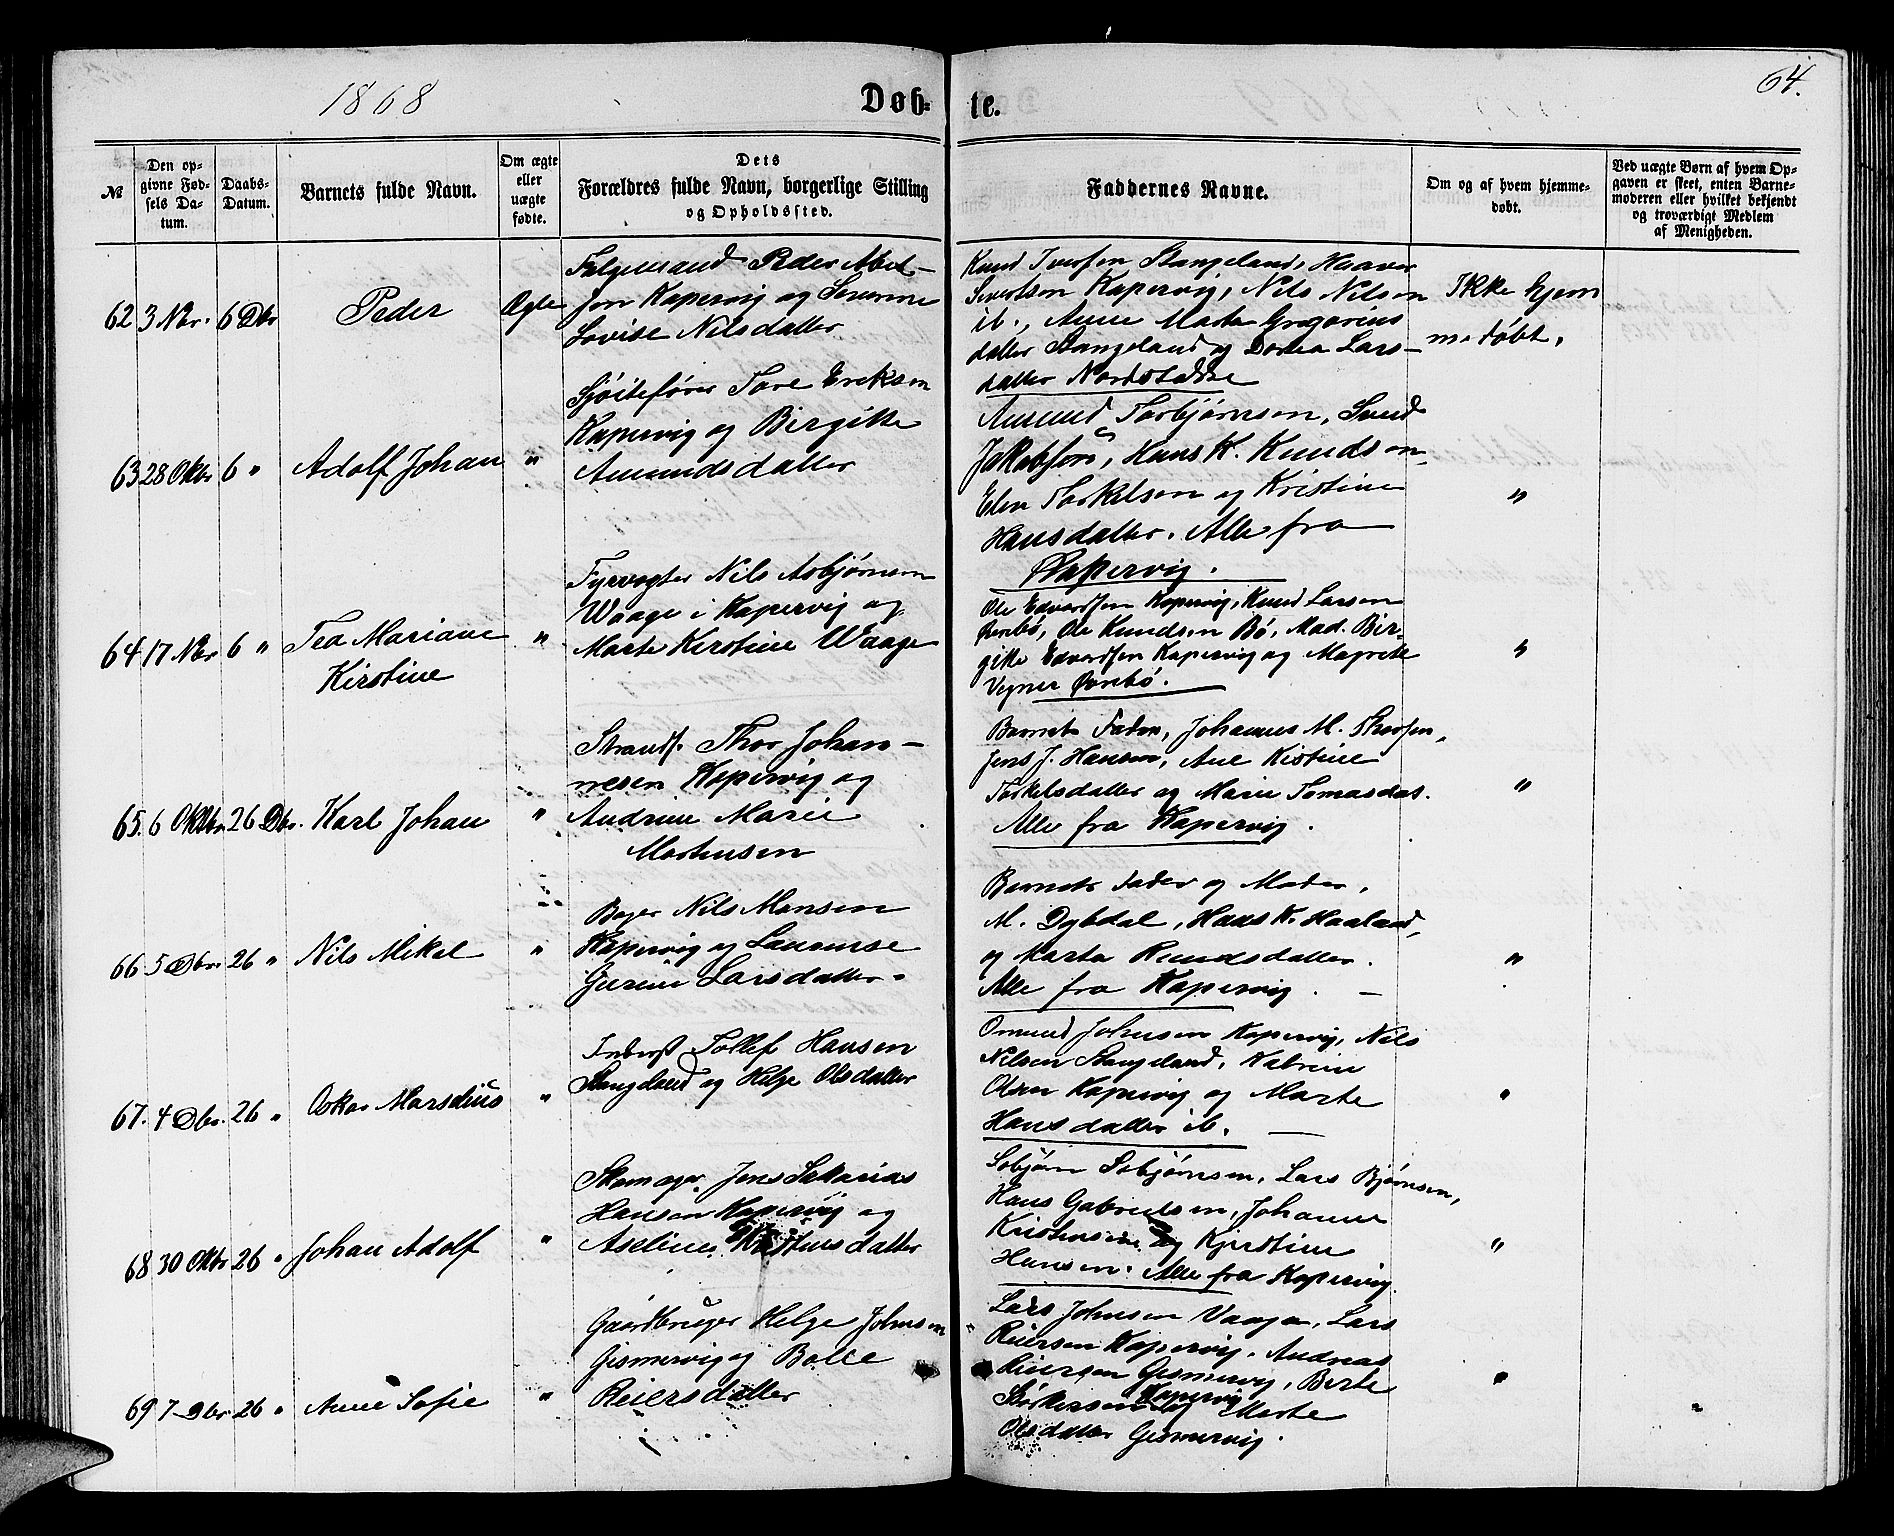 1868
Døb-
te.
64.
№
Den op-
givne Fød-
sels Da-
tum.
Daabs-
Datum.
Barnets fulde Navn.
Om ægte
eller
uægte
fødte.
Dets
Forældres fulde Navn, borgerlige Stilling
og Opholdssted.
Faddernes Navne.
Om og af hvem hjemme-
døbt.
Ved uægte Børn af hvem Op-
gaven er skeet, enten Barne-
moderen eller hvilket bekjendt
og troværdigt Medlem
af Menigheden.
62 3 Nbr. 6 Dbr
Peder
Ægte
Peder
sen Kopervig og Severine
Lovise Nilsdatter
Knud Iversen Stangeland, Haaver
Sivertsen Kopervig, Nils Nilsen
ib., Anne Marta Gregorius
datter Stangeland og Dorea Lars-
datter Nordstokke
Ikke hjem
medøbt.
63 28 Oktbr 6 "
Adolf Johan
"
Tore Eriksen
Kopervig og Birgitte
Amundsdatter
Amund Torbjørnsen, Svend
Jakobsen, Hans K. Knudsen,
Elen Torkelsen og Kristine
Hansdatter. Alle fra
Kopervig.
"
64 17 Nbr 6 "
Tea Mariane
Kirstine
"
Fyrvogter Nils Asbjørnsen
Waage i Kopervig og
Marte Kirstine Waage
Ole Edvardsen Kopervig, Knud Larsen
Ørebø, Ole Knudsen Bø, Mad. Bir-
gitte Edvardsen Kopervig og Magrete
Vegner Ørebø.
"
65. 6 Oktbr 26 Dbr.
Karl Johan
"
Strands. Thor Johan-
nesen Kopervig og
Andrine Marie
Mortensen
Barnets Fader, Johannes M. Thorsen,
Jens J. Hansen, Ane Kistine
Torkelsdatter og Marie Tomasdat.
Alle fra Kopervig.
"
66 5 Dbr. 26 "
Nils Mikal
"
Bager Nils Monsen
Kopervig og Laurense
Gurine Larsdatter.
Barnets Fader og Moder,
M. Dybdal, Hans K. Haaland,
og Marta Knudsdatter.
Alle fra Kopervig. —
"
67. 4 Dbr. 26 "
Oskar Marselius
"
Inderst Tollef Hansen
Stangeland og Helge Olsdatter
Omund Johnsen Kopervig, Nils
Nilsen Stangeland, Katrine
Olsen Kopervig og Marte
Hansdatter ib. —
"
68 30 Oktbr 26 "
Johan Adolf
"
Skomager Jens Sakarias
Hansen Kopervig og
Aseline datter
Sobjørn Sobjørnsen, Lars Bjørnsen,
Hans Gabrielsen, Johanne
Kristensen og Kjerstine
Hansen. Alle fra Kopervig.
"
69 7 Dbr 26 "
Anne Sofie
"
Gaardbruger Helge Johnsen
Gismervig og Bolle
Reiersdatter
Lars Johnsen Vaage, Lars
Reiersen Kopervig, Andreas
Reiersen Gismervig, Berte
Kopervig
og Marte
Olsdatter Gismervig.
"